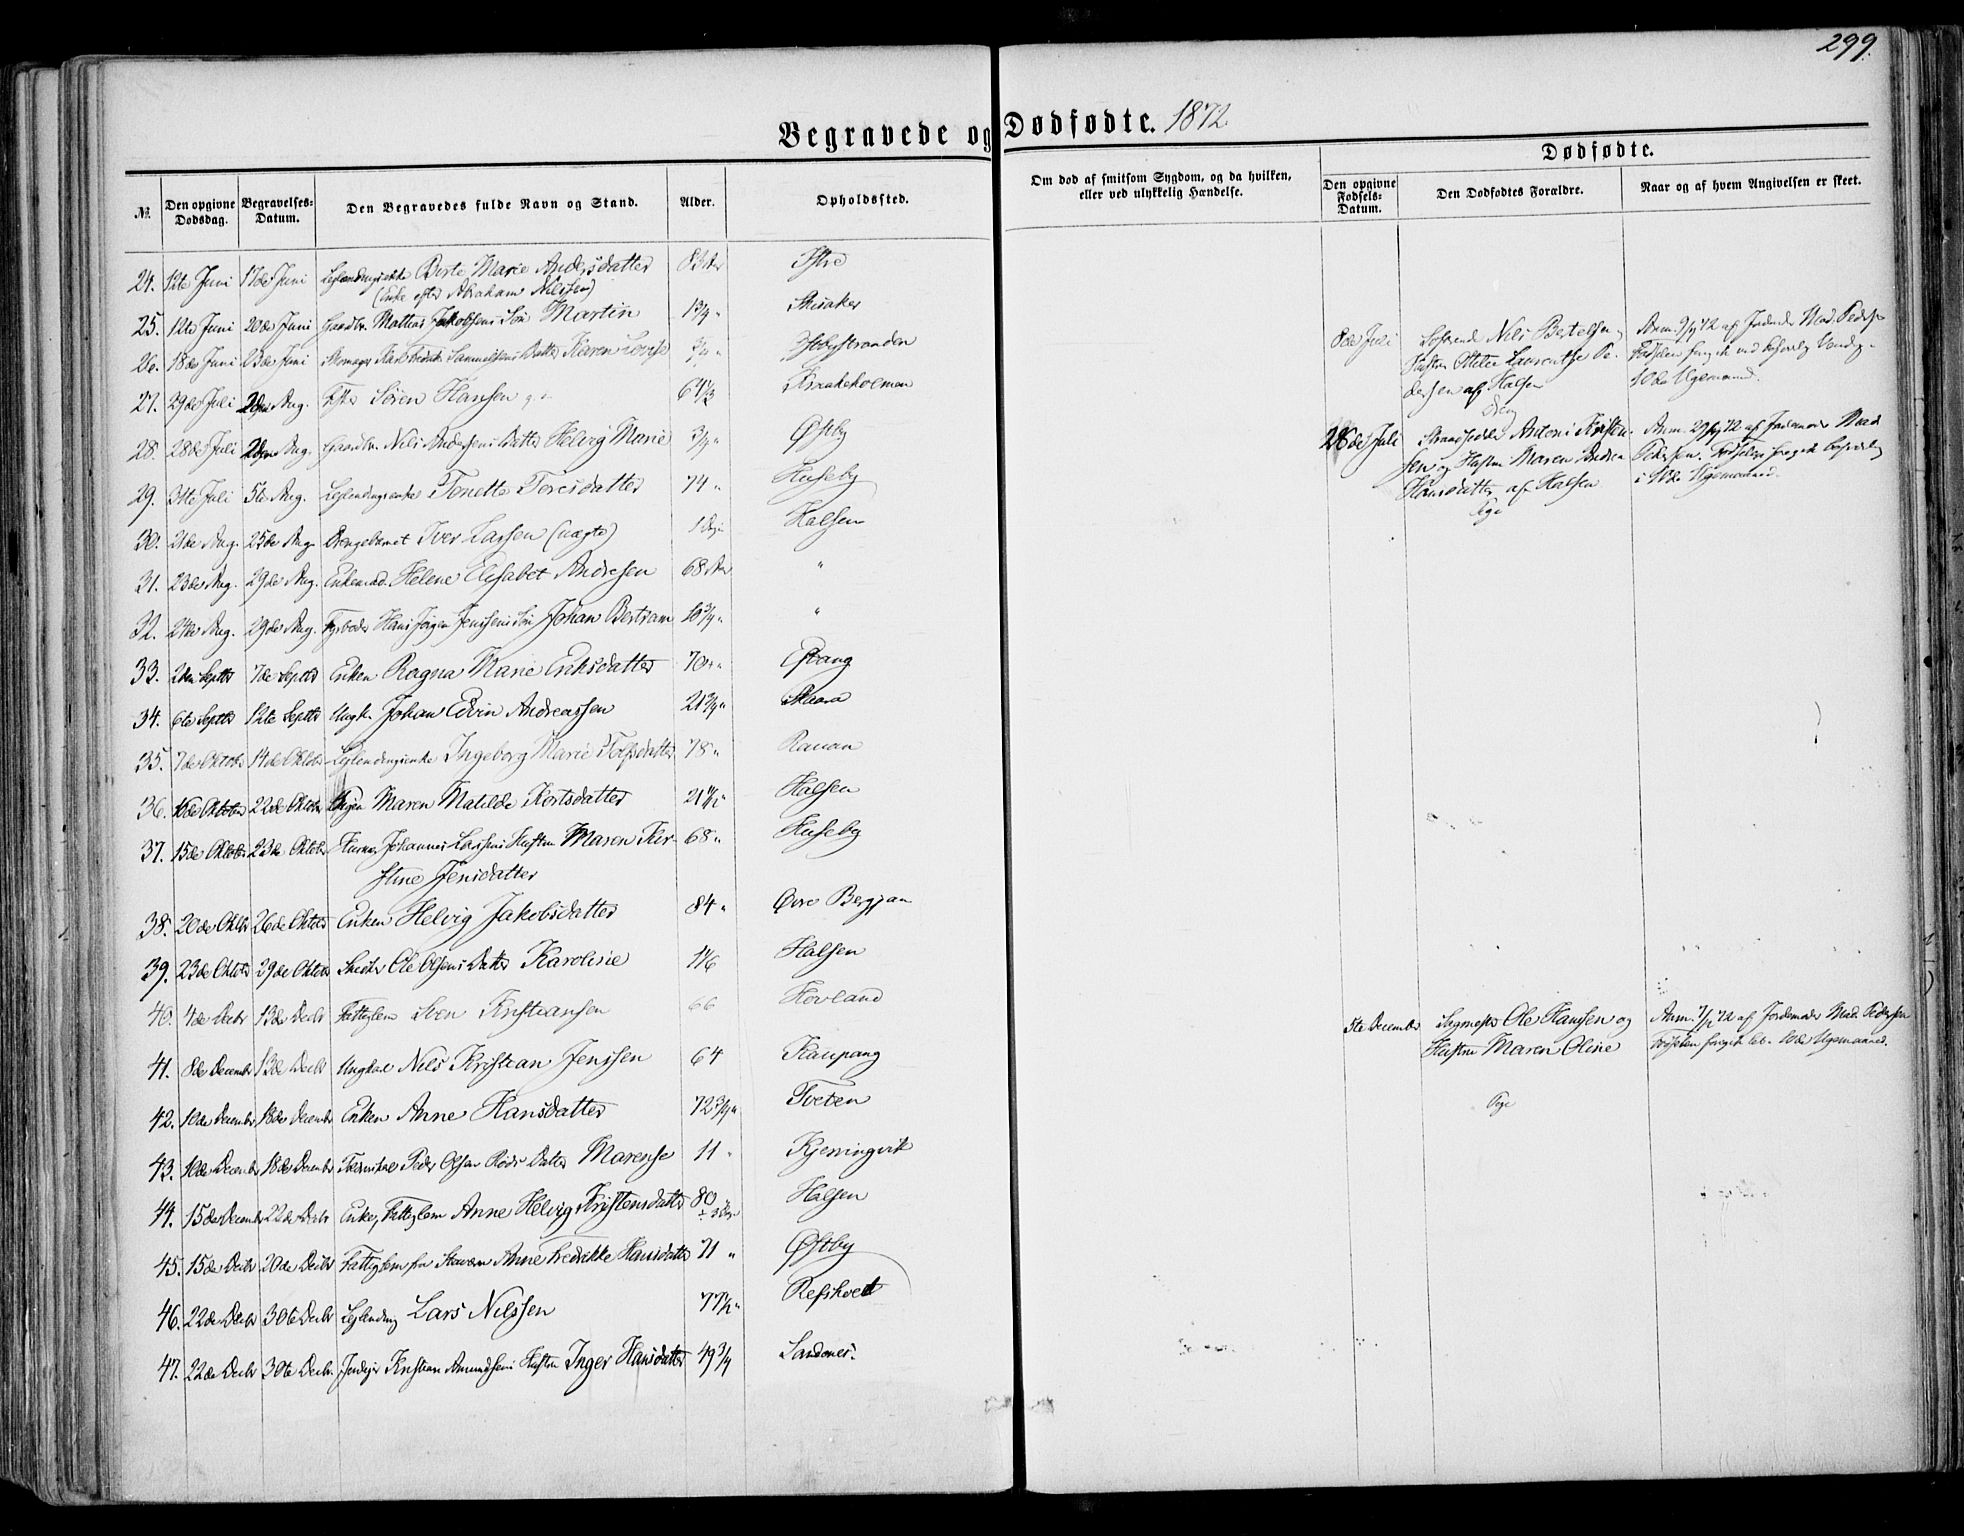 299.
Begravede og Dødfødte. 1872.
Dødfødte.
№ Den opgivne Dødsdag. Begravelses-Datum. Den Begravedes fulde Navn og Stand. Alder. Opholdssted. Om død af smitsom Sygdom, og da hvilken, eller ved ulykkelig Hændelse. Den opgivne Fødsels-Datum. Den Dødfødtes Forældre. Naar og af hvem Angivelsen er skeet.
24. 12te Juni 17de Juni Berte Marie Andersdatter 83 Istre
(Enke efter Abraham Nilssen)
25. 12te Juni 20de Juni Gaardbr. Mattias Jakobsens Søn Martin 1¾ "
26. 18de Juni 23de Juni Skomager Karl Fredrik Samuelsens Datter Karen Lovise
27. 29de Juli Aug. Søren Hansen Kirkeholmen
28. 28de Juli Aug. Gaardbr. Nils Andersens Datter Helvig Marie ¾ " Østby
29. 31te Juli 5te Aug. Leylendingsenke Tonette Toresdatter 74 " Huseby
30. 21de Aug. 25de Aug. Drengebarnet Iver Larsen (uægte) Halsen
31. 23de Aug. 29de Aug. Enkemad. Helene Elisabet Andresen 68 Aar "
32. 24de Aug. 29de Aug. Hans Jørgen Jenssens Søn Johan Bertram 10¾ " "
33. 2den Septbr 7de Septbr Enken Ragna Marie Eriksdatter 70 "
34. 6te Septbr 12te Septbr Ungk. Johan Edvin Andreassen 21¾ " Skaara
35. 7de Oktobr 14de Oktobr Leylendingsenke Ingeborg Marie 78 " Rauan
36. 16de Oktober 22de Oktober Pigen Maren Matilde Kortsdatter 21 Halsen
37. 15de Oktober 23de Oktober Johannes Larssens Hustru Maren Kir- 68 " Huseby
stine Jensdatter
38. 20de Oktbr 26de Oktobr Enken Helvig Jakobsdatter 84 " Øvre Bergan
39. 23de Oktobr 29de Oktober Ole Olsens Datter Karoline 1 1/6 Halsen
40. 4de Decbr 13de Decbr Fattiglem Sven Kristiansen 66 Hovland
41. 8de December 13de Decbr Ungkarl Nils Kristian Jenssen 64 Kaupang
42. 10de December 18de December Enken Anne Hansdatter 72¾ " Tveten
43. 10de December 18de December Peder Olsen Røds Datter Marense 11 " Kjerringvik
44. 15de December 22de Decbr Enke, Fattiglem Anne Helvig Kristensdatter 80 Halsen
÷ 3 Dage
45. 15de Decbr 20de Decbr Fattiglem fra Stavern Anne Fredrikke Hansdatter 71 " Østby
46. 22de Decbr 30te Decbr Leylending Lars Nilssen 77½ " Refsholt
47. 22de Decbr 30te Decbr. Kristian Amundsens Hustru Inger Hansdatter 49¾ Sandenes.
8de Juli Nils Bertelsen og
Hustru Otilie Laurentse Pe-
dersen af Halsen
Dreng
Anm. 9/7 72 af Jordmoder Mad. Pedersen
Fødselen foregik ved
10de Ugemaaned.
28de Juli Strandsidder Antoni Kristen-
sen og Hustru Maren Andrea
Hansdatter af Halsen
Pige
Anm. 29/7 72 af Jordemoder Mad
Pedersen. Fødselen foregik
i 10de Ugemaaned.
5te December Ole Hanssen og
Hustru Maren Oline
Pige
Anm. af Jordemoder Mad. Pedersen
Fødselen foregik let. 10de Ugemaaned.